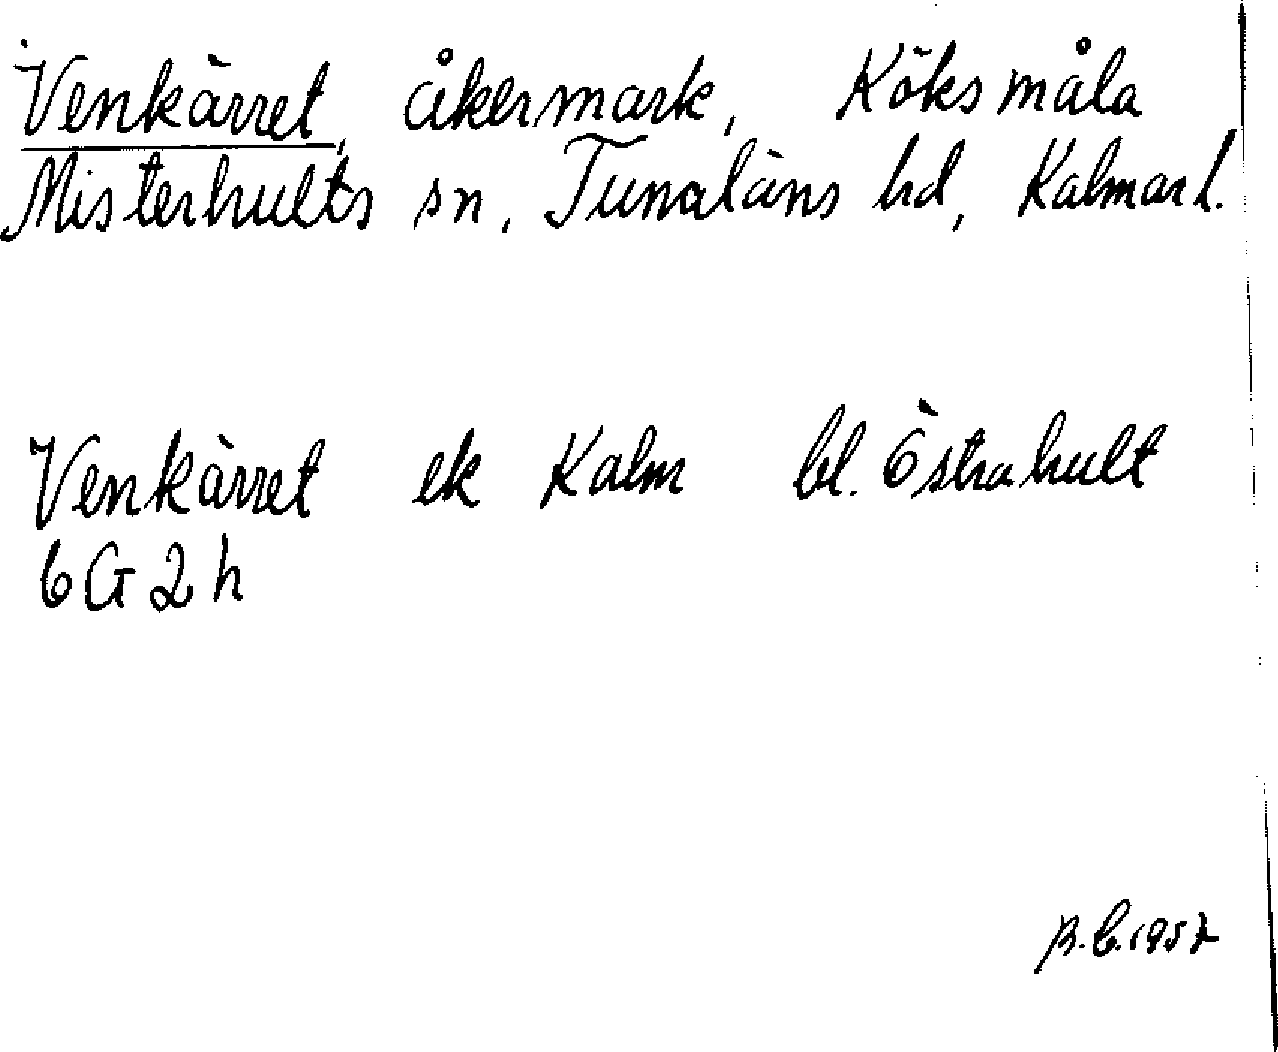 Venkärret, åkermark, Köksmåla
Misterhults sn, Tunaläns hd, Kalmar l.
Venkärret ek Kalm bl. Östrahult
6G2h
B.C. 1957